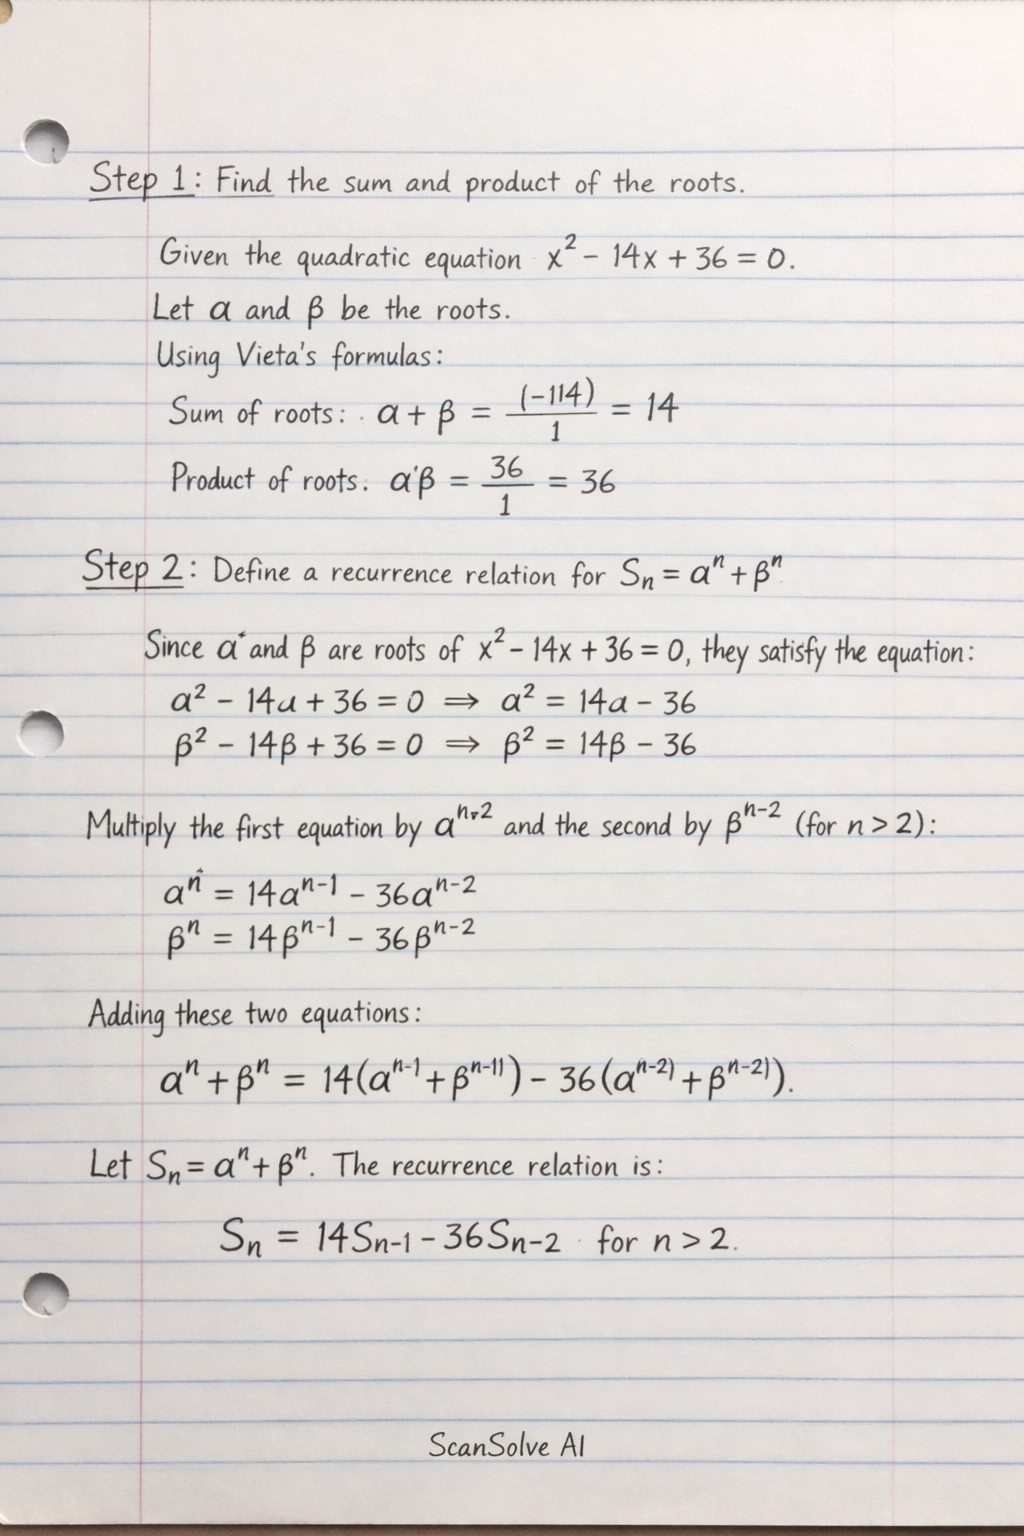 Step 1: Find the sum and product of the roots.
Given the quadratic equation x² - 14x + 36 = 0.
Let α and β be the roots.
Using Vieta's formulas:
Sum of roots: α + β = (-114)/1 = 14
Product of roots. α·β = 36/1 = 36
Step 2: Define a recurrence relation for Sₙ = αⁿ + βⁿ
Since α and β are roots of x² - 14x + 36 = 0, they satisfy the equation:
α² - 14α + 36 = 0 ⇒ α² = 14α - 36
β² - 14β + 36 = 0 ⇒ β² = 14β - 36
Multiply the first equation by αⁿ⁻² and the second by βⁿ⁻² (for n > 2):
αⁿ = 14αⁿ⁻¹ - 36αⁿ⁻²
βⁿ = 14βⁿ⁻¹ - 36βⁿ⁻²
Adding these two equations:
αⁿ + βⁿ = 14(αⁿ⁻¹ + βⁿ⁻¹⁾) - 36(αⁿ⁻²⁾ + βⁿ⁻²⁾).
Let Sₙ = αⁿ + βⁿ. The recurrence relation is:
Sₙ = 14Sₙ₋₁ - 36Sₙ₋₂ for n > 2.
ScanSolve AI